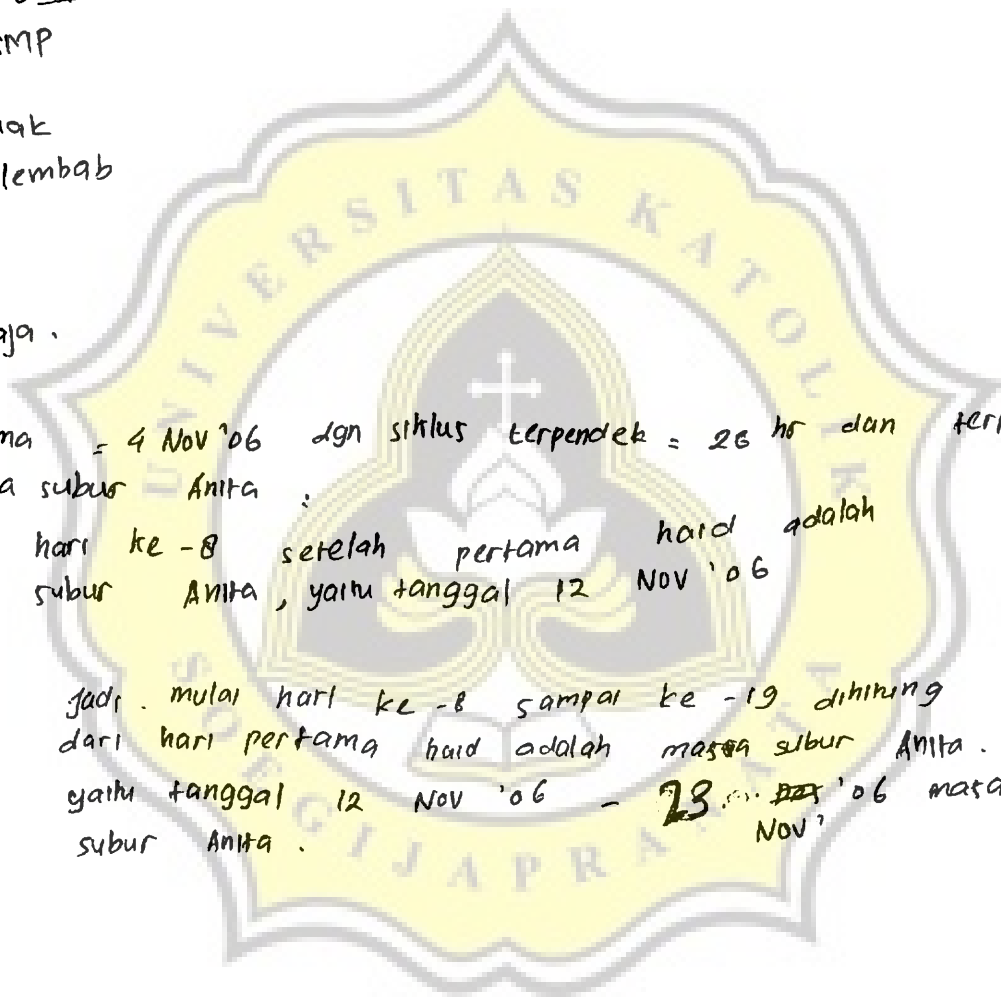 SMP
lembab
= 4 Nov '06 dgn siklus terpendek = 26 hr dan
subur Anita :
hari ke -8 setelah pertama haid adalah
subur Anita, yaitu tanggal 12 Nov '06
Jadi. mulai hari ke -8 sampai ke -19 dihitung
dari hari pertama haid adalah masa subur Anita.
yaitu tanggal 12 Nov '06 - 23 '06 masa
Nov'
subur Anita.
UNIVERSITAS KATOLIK
SOEGIJAPRANATA